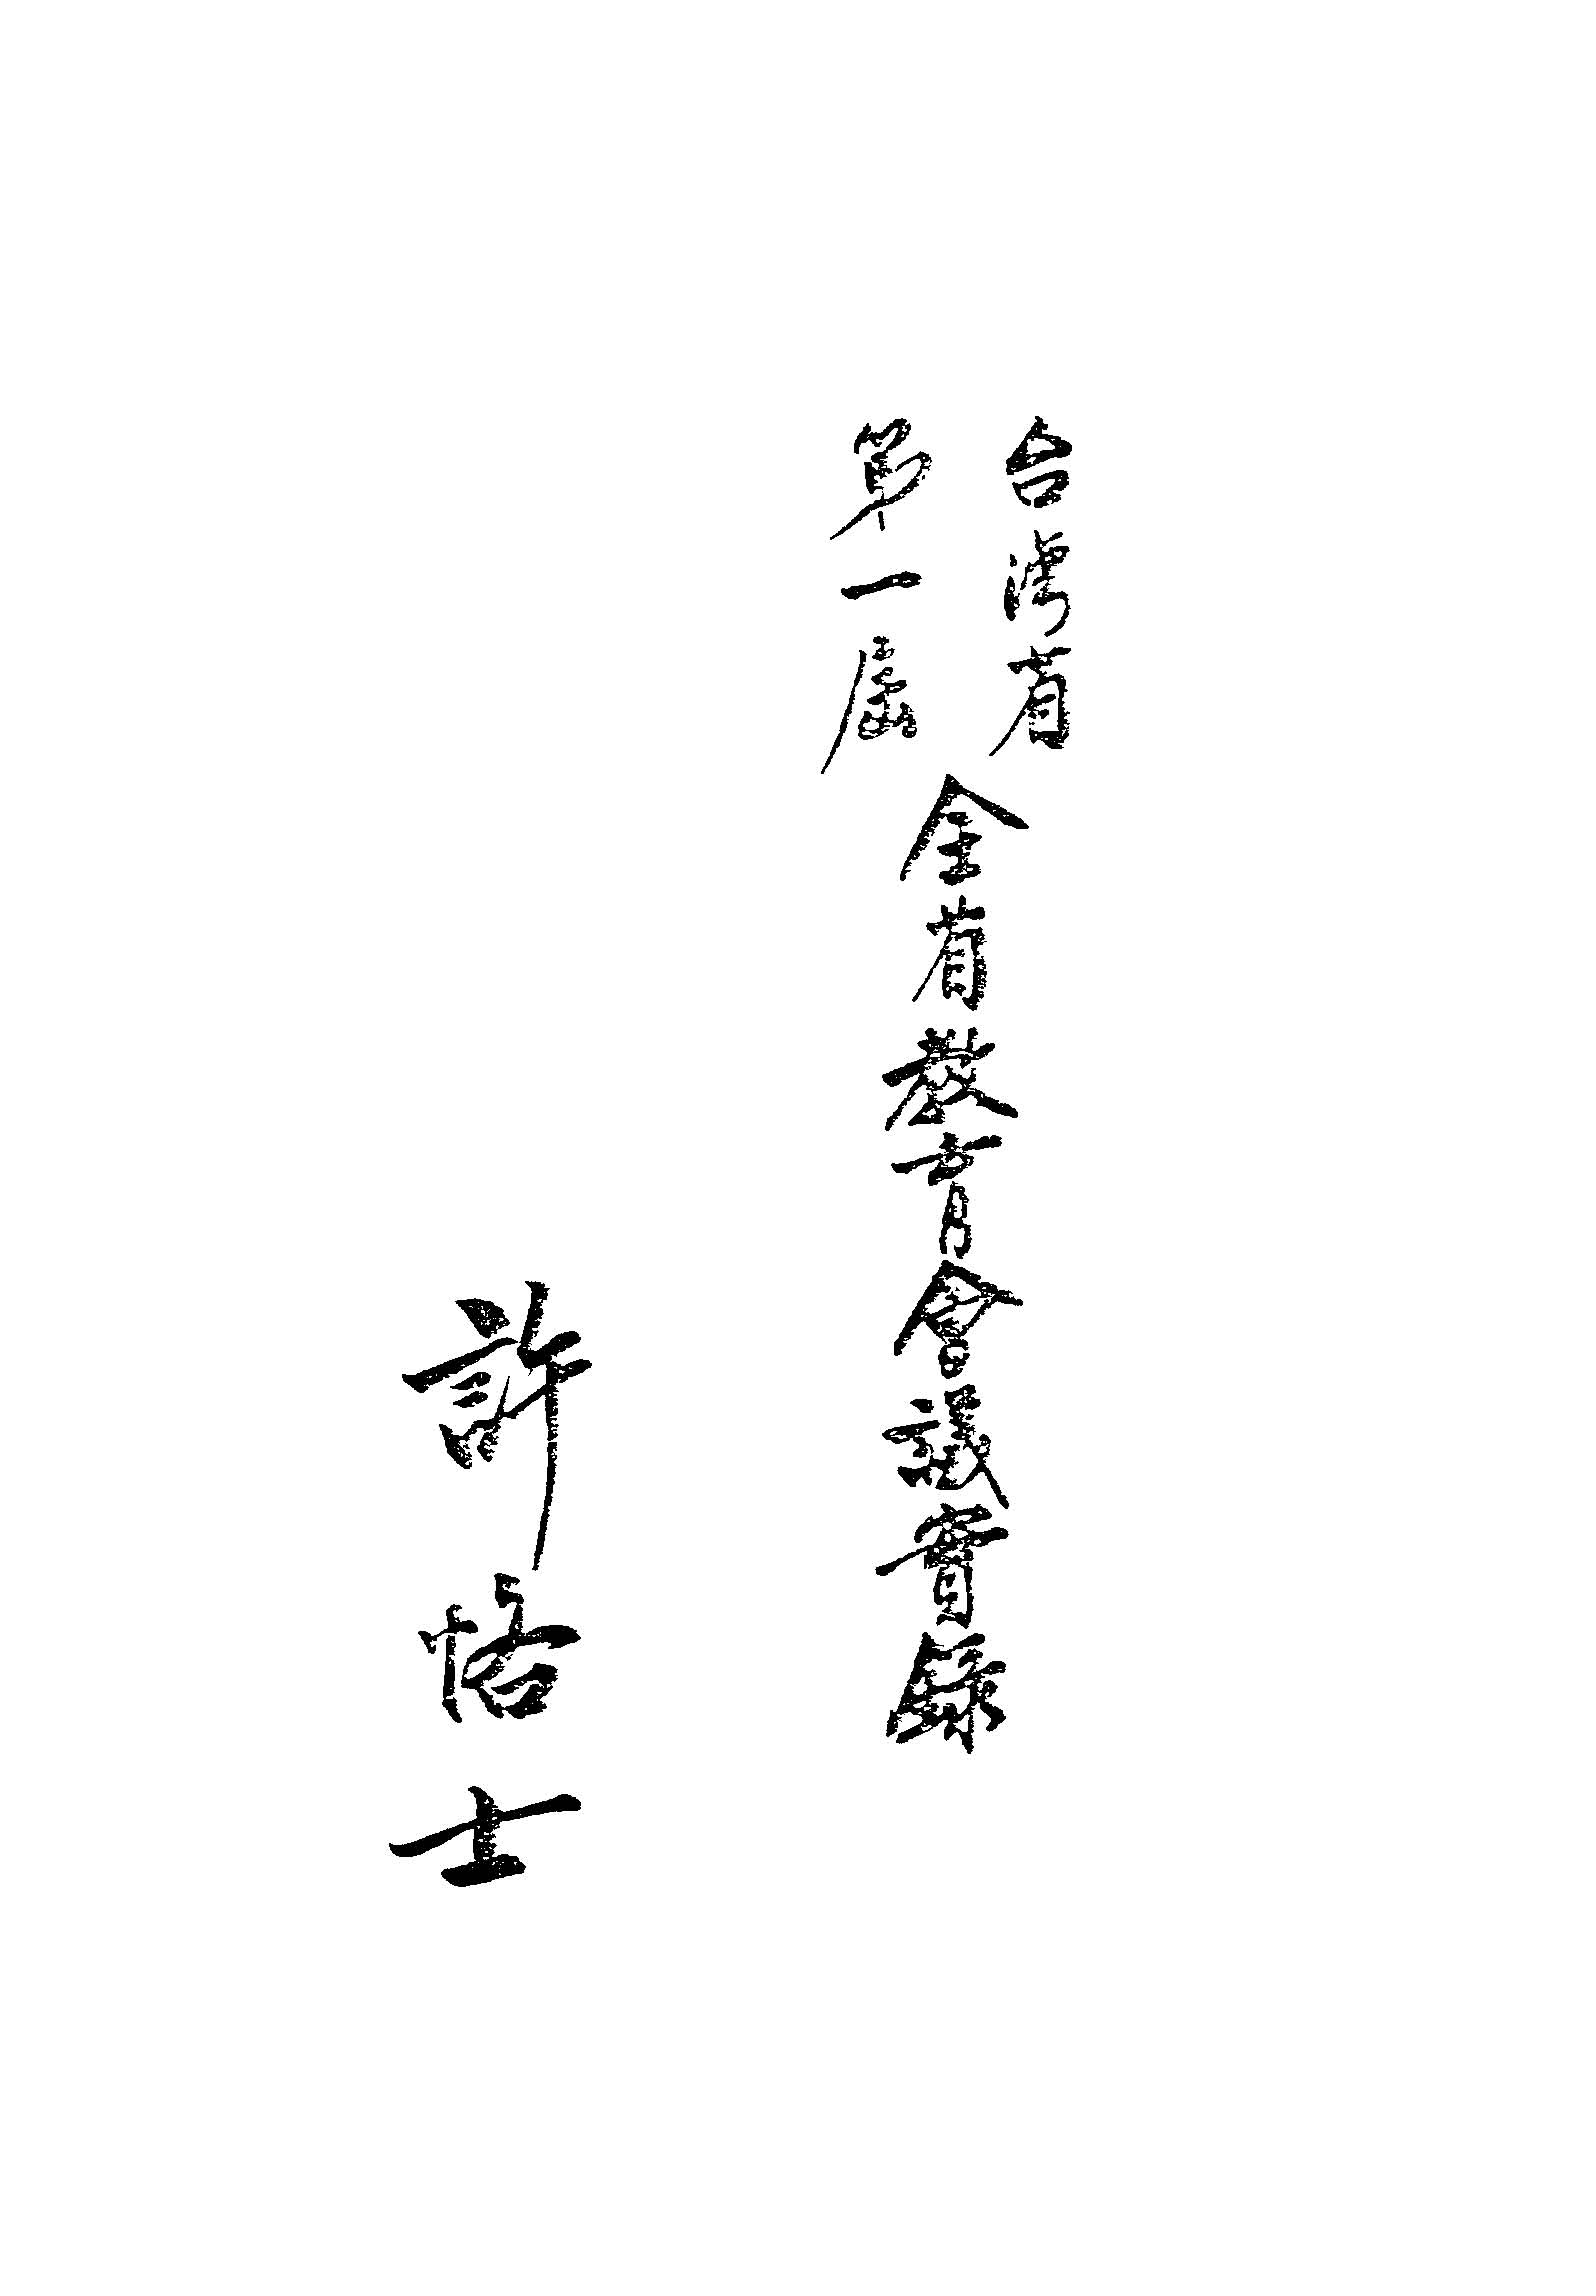 台灣省
第一屆
全省教育會議實錄
許恪士